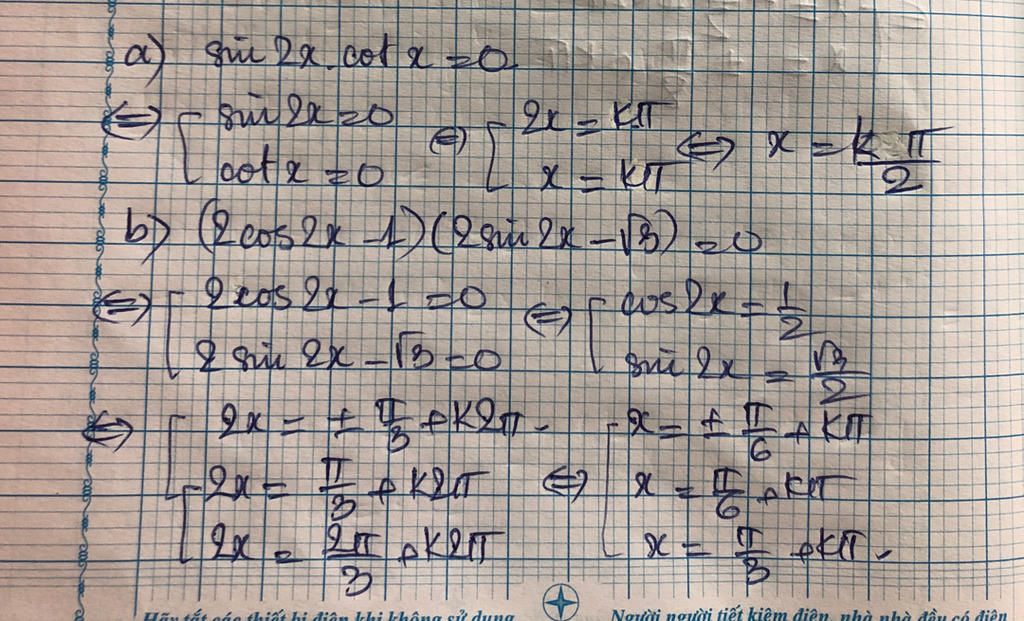 a) sin 2x . cot x = 0
⇔ [ sin 2x = 0 ⇔ [ 2x = kπ ⇔ x = k π/2
cot x = 0 x = kπ
b) (2cos 2x - 1)(2sin 2x - √3) = 0
⇔ [ 2cos 2x - 1 = 0 ⇔ [ cos 2x = 1/2
2 sin 2x - √3 = 0 sin 2x = √3/2
⇔ [ 2x = ± π/3 + k2π - [ x = ± π/6 + kπ
[ 2x = π/3 + k2π ⇔ x = π/6 + kπ
2x = 2π/3 + k2π x = π/3 + kπ -
Hãy tắt các thiết bị điện khi không sử dụng Người người tiết kiệm điện, nhà nhà đều có điện